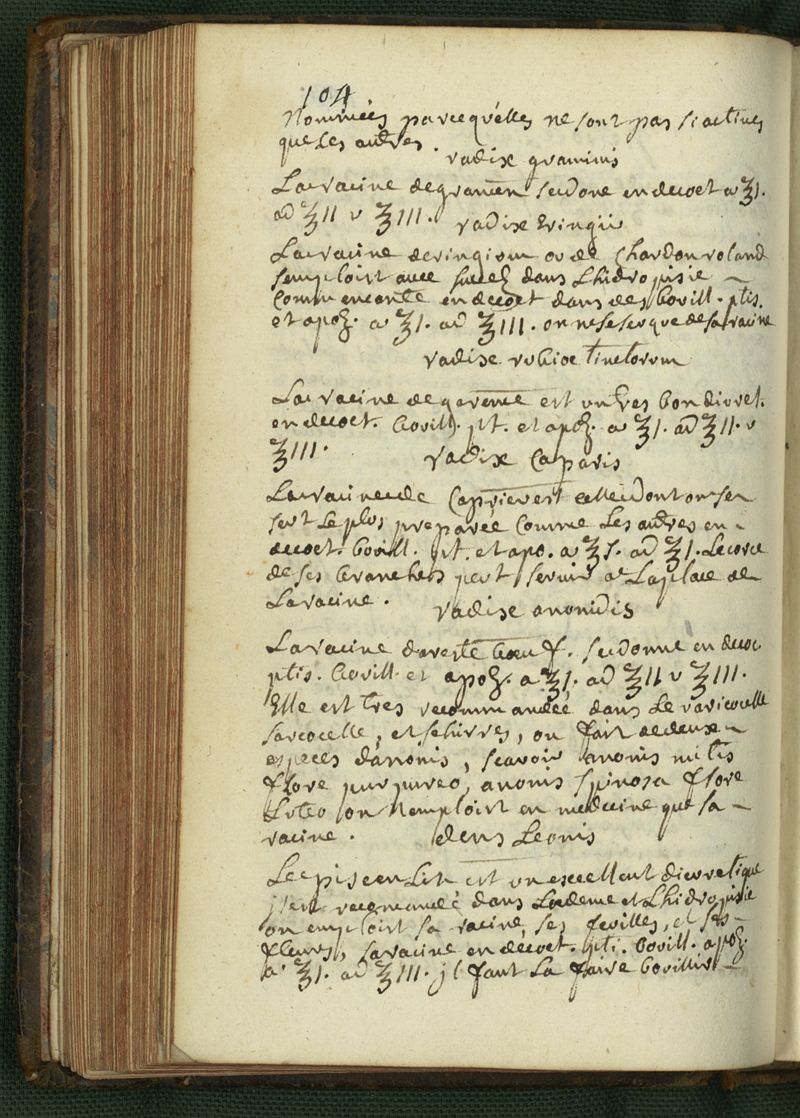 104
Nommées parcequ'elles ne sont pas si actives
que les autres.
radix graminis
La racine de gramen se done en decoct a ʒ I.
ad ʒ II v ʒ III.
radix Eringii
La racine deringium ou de Chardon roland
semploit avec succez dans Lhidropisie
Comme en decoct dans des bouill. ptis.
et apoz. a ʒ I. ad ʒ III. on ne se ser que de sa racine
radix rubiae tinctorum
La racine de garence est un tres bon diuret.
en decoct. bouill. pt. et apoz. a ʒ I. ad ʒ II. v
ʒ III.
radix Caparis
La racine de Caprier est celle dont on se
sert le plus preparée Comme Les autres en
decoct. bouill. pt. et apo. a ʒ ad ʒ I. Lecorce
de ses branches peut servir a La place de
La racine.
radix anonidis
La racine dareste boeuf. se donne en decoc
ptis. bouill. et apoz. a ʒ I. ad ʒ II v ʒ III.
Elle est tres recommandée dans Le varicocelle
sarcocelle, et schirres, on fait de deux
especes danonis, scavoir anonis mitis
flore purpureo, anonis spinosa flore
Luteo on nemploit en medecine que sa
racine.
dens Leonis
Le pisenlit est un excellent diuretique
il est recomandé dans Lédeme et Lhidropisie
on emploit sa racine, ses feuilles, et ses
fleurs, sa racine en decoct. pti. bouill. apoz.
a ʒ I. ad ʒ III. jl faut La faire bouillir